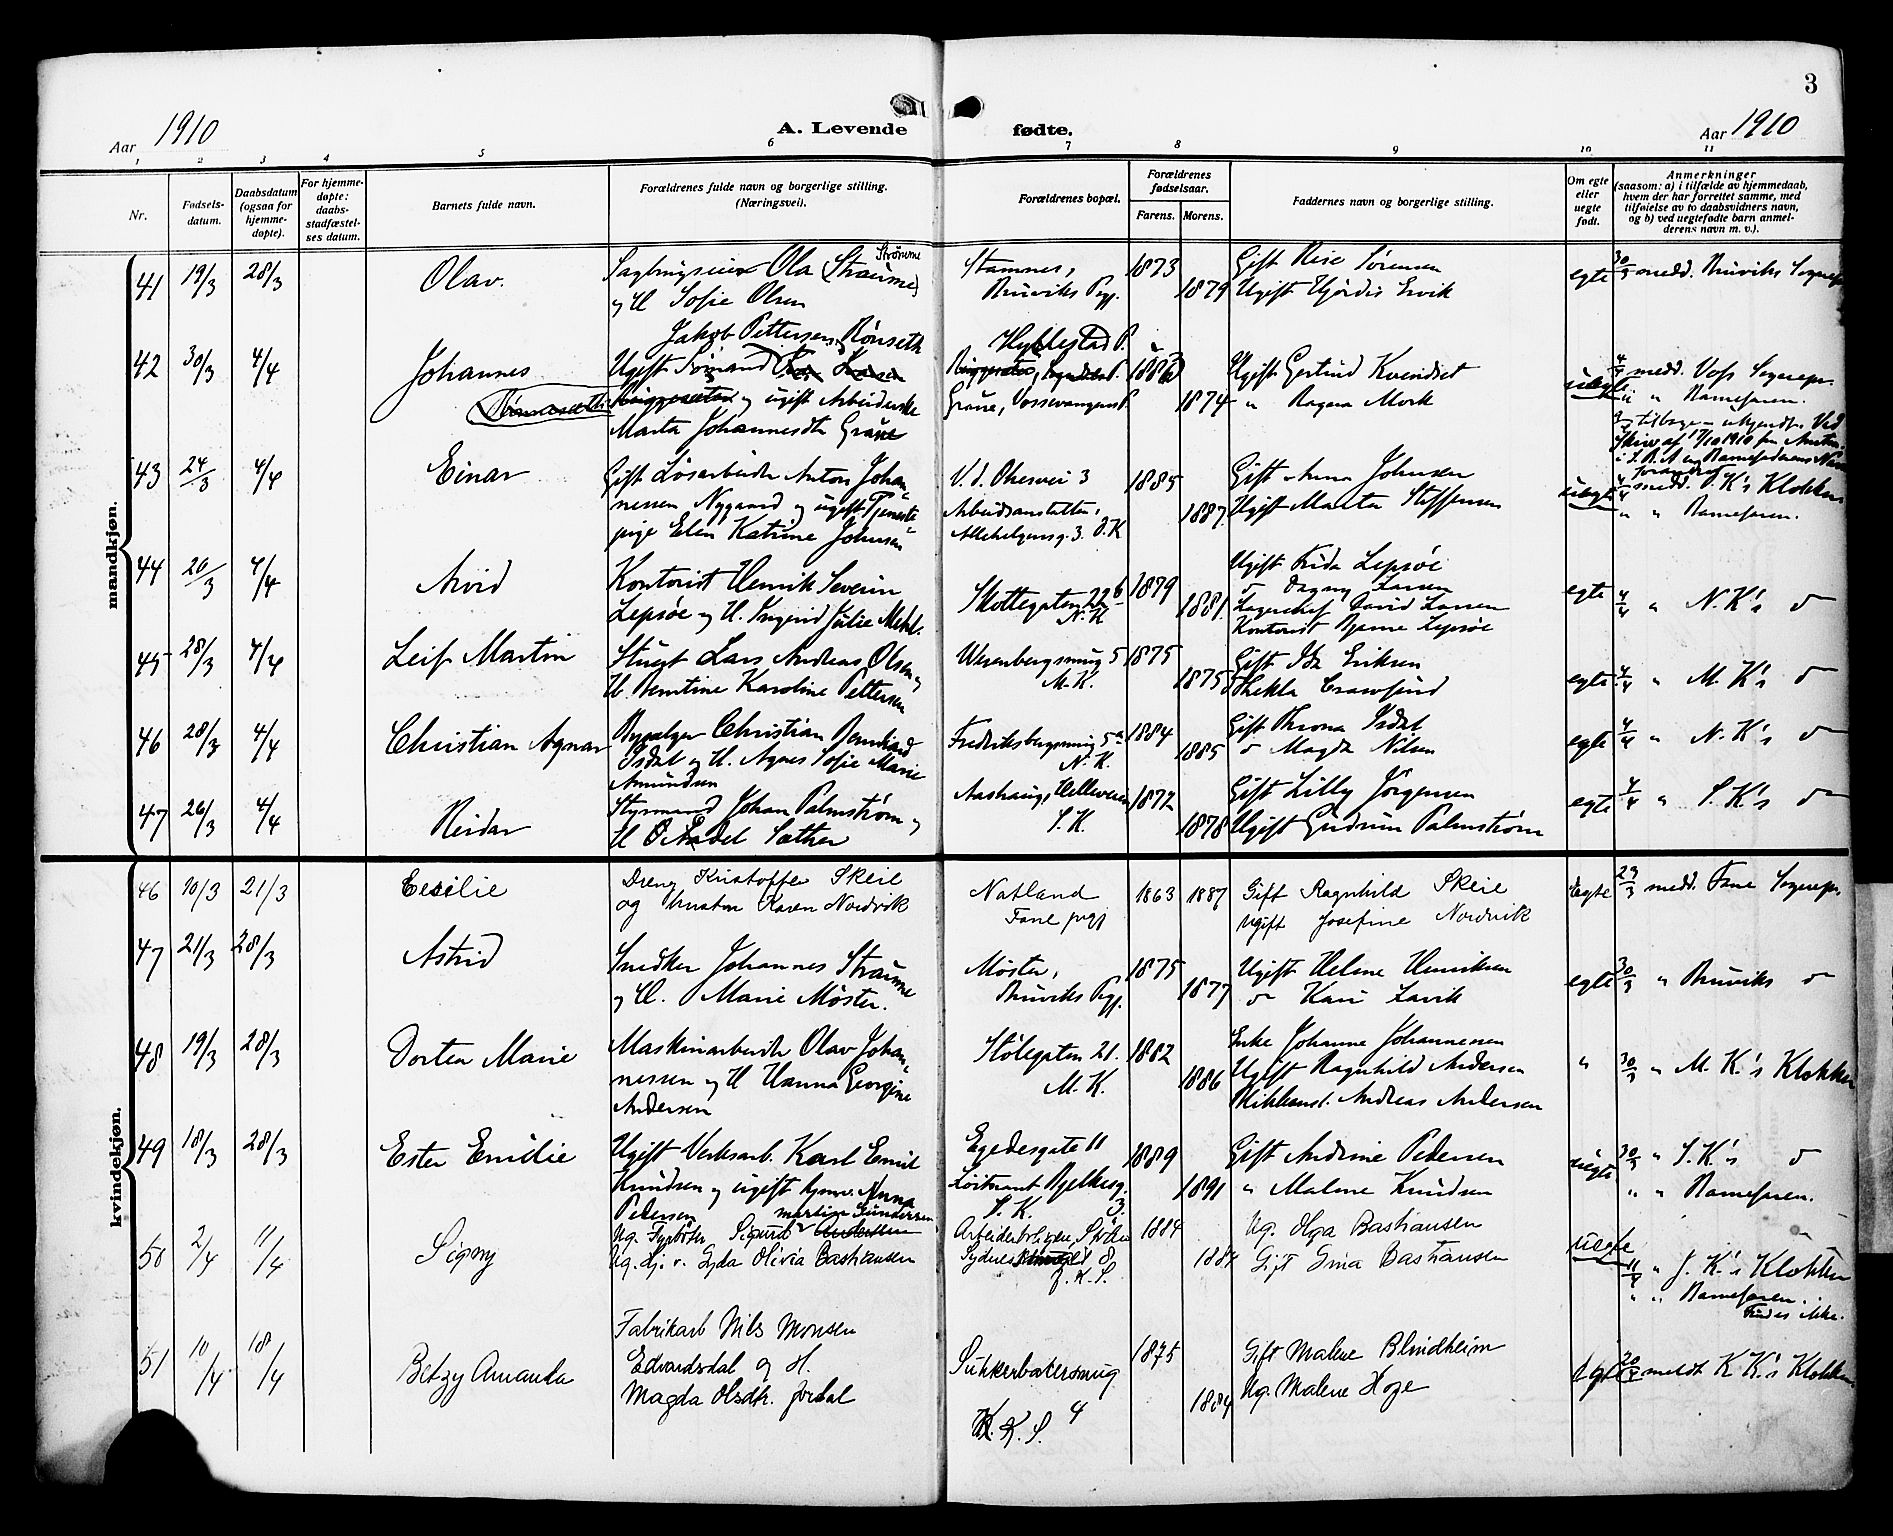 3
Aar 1910
A. Levende
fødte.
Aar 1910
1 2 3 4 5 6 7 8 9 10 11
Nr.
Fødsels-
datum.
Daabsdatum
(ogsaa for
hjemme-
døpte).
For hjemme-
døpte:
daabs-
stadfæstel-
ses datum.
Barnets fulde navn.
Forældrenes fulde navn og borgerlige stilling.
(Næringsvei).
Forældrenes bopæl.
Forældrenes
fødselsaar.
Farens. Morens.
Faddernes navn og borgerlige stilling.
Om egte
eller
uegte
født.
Anmerkninger
(saasom: a) i tilfælde av hjemmedaab,
hvem der har forrettet samme, med
tilføielse av to daabsvidners navn,
og b) ved uegtefødte barn anmel-
derens navn m. v.).
mandkjøn.
41 19/3 28/3 Olav.
Ola (Straume) Strømme
og H. Sofie Olsen
Stamnes,
Bruviks Pgj.
1873 1879
Gift Sørensen
Ugift Hjørdis Ervik
egte 30/3 medd. Bruviks Sogneprs
42 30/3 4/4 Johannes
Jakob Pettersen Rønseth
Ugift Sømand
og ugift Arbeiderske
Marta Johannesdtr Graue
Hyllestad P.
Graue, Vossevangens P.
1883 1874
Ugift Gertrud
" Ragna Mork
uegte 4/4 medd. Voss Sognepr.
" " Barnefaren.
tilbage ukjendt. Ved
Skriv af 17/10 1910 fra
43 24/3 4/4 Einar
Gift Løsarbeider Anton Johan-
nessen Nygaard og ugift Tjeneste-
pige Elen Katrine Johnsen
V. d. Ohesvei 3
Arbeidsanstalten,
Allehelgensg. 3. D.K
1885 1887.
Gift Anna Johnsen
Ugift Marta Steffensen
uegte 4/4 medd. D. K's Klokker
" " Barnefaren.
44 20/3 4/4 Arvid
Kontorist Henrik Severin
Lepsøe og H. Ingrid Julie Mehl.
Skottegaten 22 b
N. K
1879 1881.
Ugift Frida Lepsøe
Dagny Larsen
Lagerchef David Larsen
Kontorist Bjarne Lepsøe
egte 4/4 " N. K's do
45 28/3 4/4 Leif Martin
Stuert Lars Andreas Olsen og
H. Berntine Karoline Pettersen
Wesenbergsmug 5
M. K.
1875 1875
Gift Ida Eriksen
Thekla Crawfurd
egte 4/4 " M. K's do
46 28/3 4/4 Christian Agnar
Christian Bernhard
Isdal og H. Agnes Sofie Marie
Amundsen
Fredriksbergsmug 5a
N. K.
1884 1885
Gift Isdal
do Magda Nilsen
egte 4/4 " N. K's do
47 26/3 4/4 Reidar
Styrmand Johan Palmstrøm og
H. Sæther
Aashaug, Helleveien
S. K.
1872 1878
Gift Lilly Jørgensen
Ugift Gudrun Palmstrøm
egte 4/4 " S. K's do
kvindekjøn.
46 10/3 21/3 Cecilie
Dreng Kristoffer Skeie
og hustru Karen Nordvik
Natland
Fane pgj
1863 1887
Gift Ragnhild Skeie
Ugift Josefine Nordvik
Egte 29/3 medd. Fane Sognepr.
47 21/3 28/3 Astrid
Snedker Johannes Straume
og H. Marie Møster.
Møster,
Bruviks Pgj.
1875 1877
Ugift Helene Henriksen
do Kari Lavik
egte 30/3 " Bruviks do
48 19/3 28/3 Dortea Marie
Maskinarbeider Olav Johan-
nessen og H Hanna Georgine
Andersen
Stølegaten 21.
M. K.
1882 1886
Enke Johanne Johannessen
Ugift Ragnhild Andersen
Andreas Andersen
" 30/3 " M. K.'s Klokker
49 18/3 28/3 Ester Emilie
Ugift Verksarb. Karl Emil
Knudsen og ugift Anna
Pedersen
Egedesgate 11
Løitnant Bjelkesg.
S. K. 3.
1889 1891
Gift Andrine Pedersen
" Malene Knudsen
uegte 30/3 " S. K.'s do
" " Barnefaren.
50 2/4 11/4 Signy
Ug. Fyrbøter Sigurd Martin Gundersen
Ug. tj. Gyda Olivia Bastiansen
Arbeiderboligene,
8
J. K. S.
1884 1884
Ug. Olga Bastiansen
Gift Gina Bastiansen
uegte 11/4 " J. K.'s Klokker
" " Barnefaren.
Findes ikke.
51 10/4 18/4 Betzy Amanda
Fabrikarb Nils Monsen
Edvardsdal og H.
Magda Olsdtr. Jordal
Sukkerhusmug
4
K. K. S.
1875 1884
Gift Malene Blindheim
Ug. Malene Hoze
egte 20/4 meldt K. K.'s Klokker.